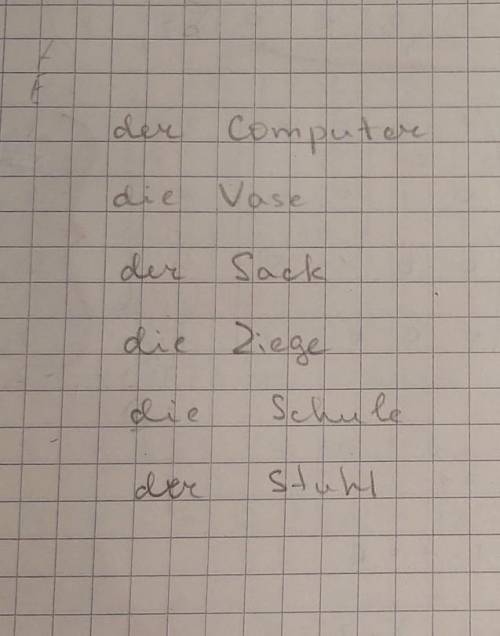 der Computer
die Vase
der Sack
die Ziege
die Schule
der Stuhl